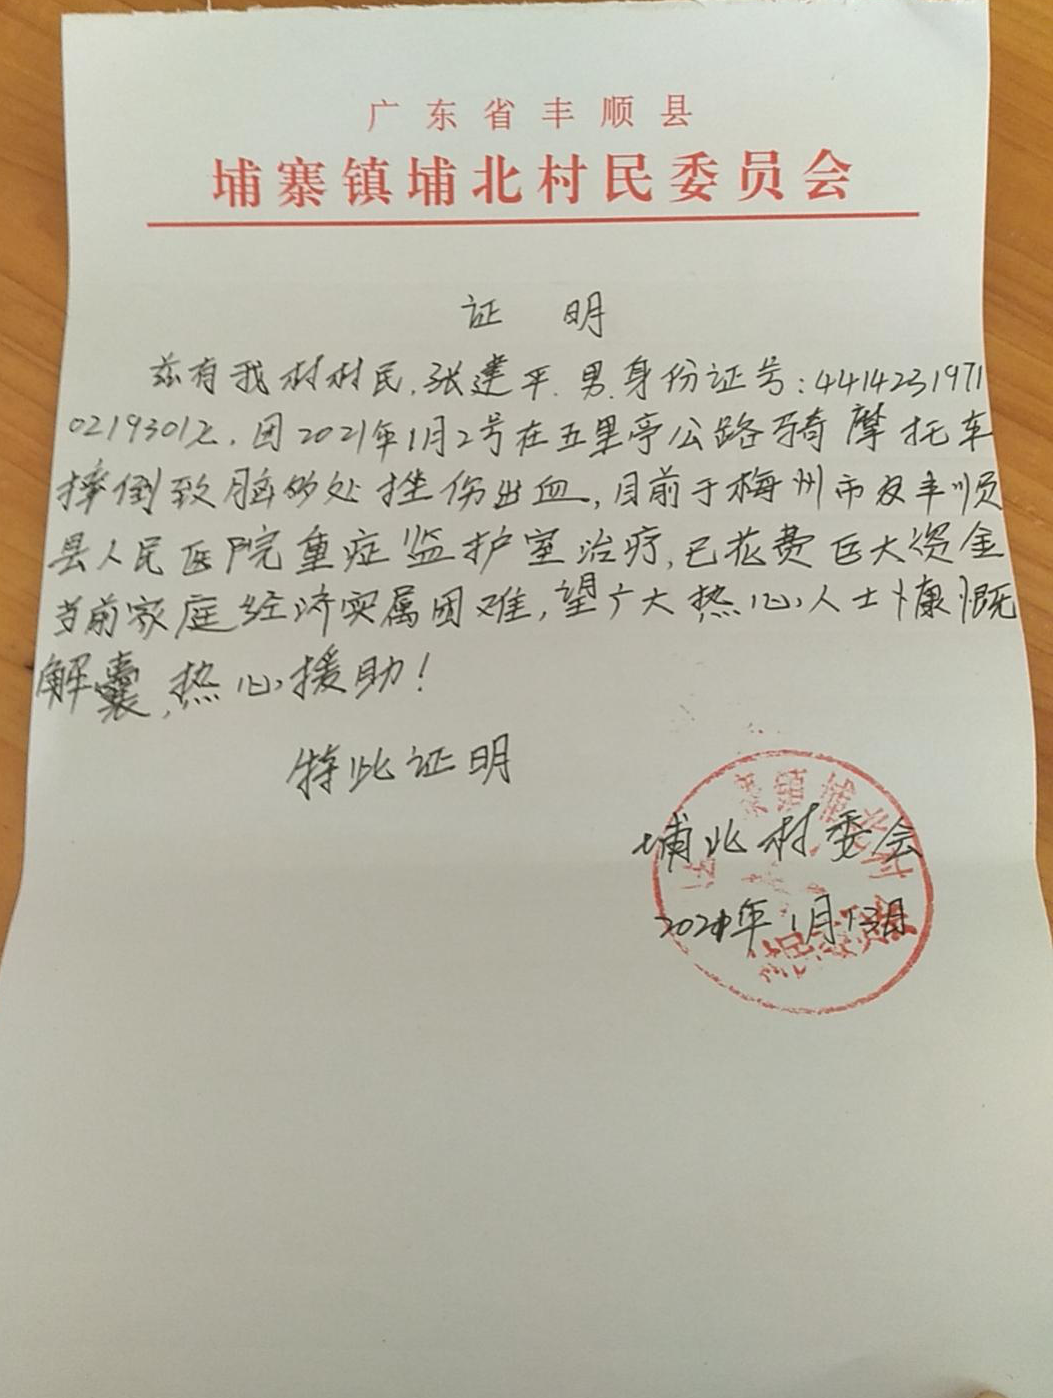 广东省丰顺县
埔寨镇埔北村民委员会
证 明
兹有我村村民,张建平.男.身份证号:4414231971
02193012,因2021年1月2号在五里亭公路骑摩托车
摔倒致脑多处挫伤出血,目前于梅州市及丰顺
县人民医院重症监护室治疗,已花费巨大资金
当前家庭经济实属困难,望广大热心人士慷慨
解囊,热心援助!
特此证明
埔北村委会
2021年1月13日
寨镇埔北村